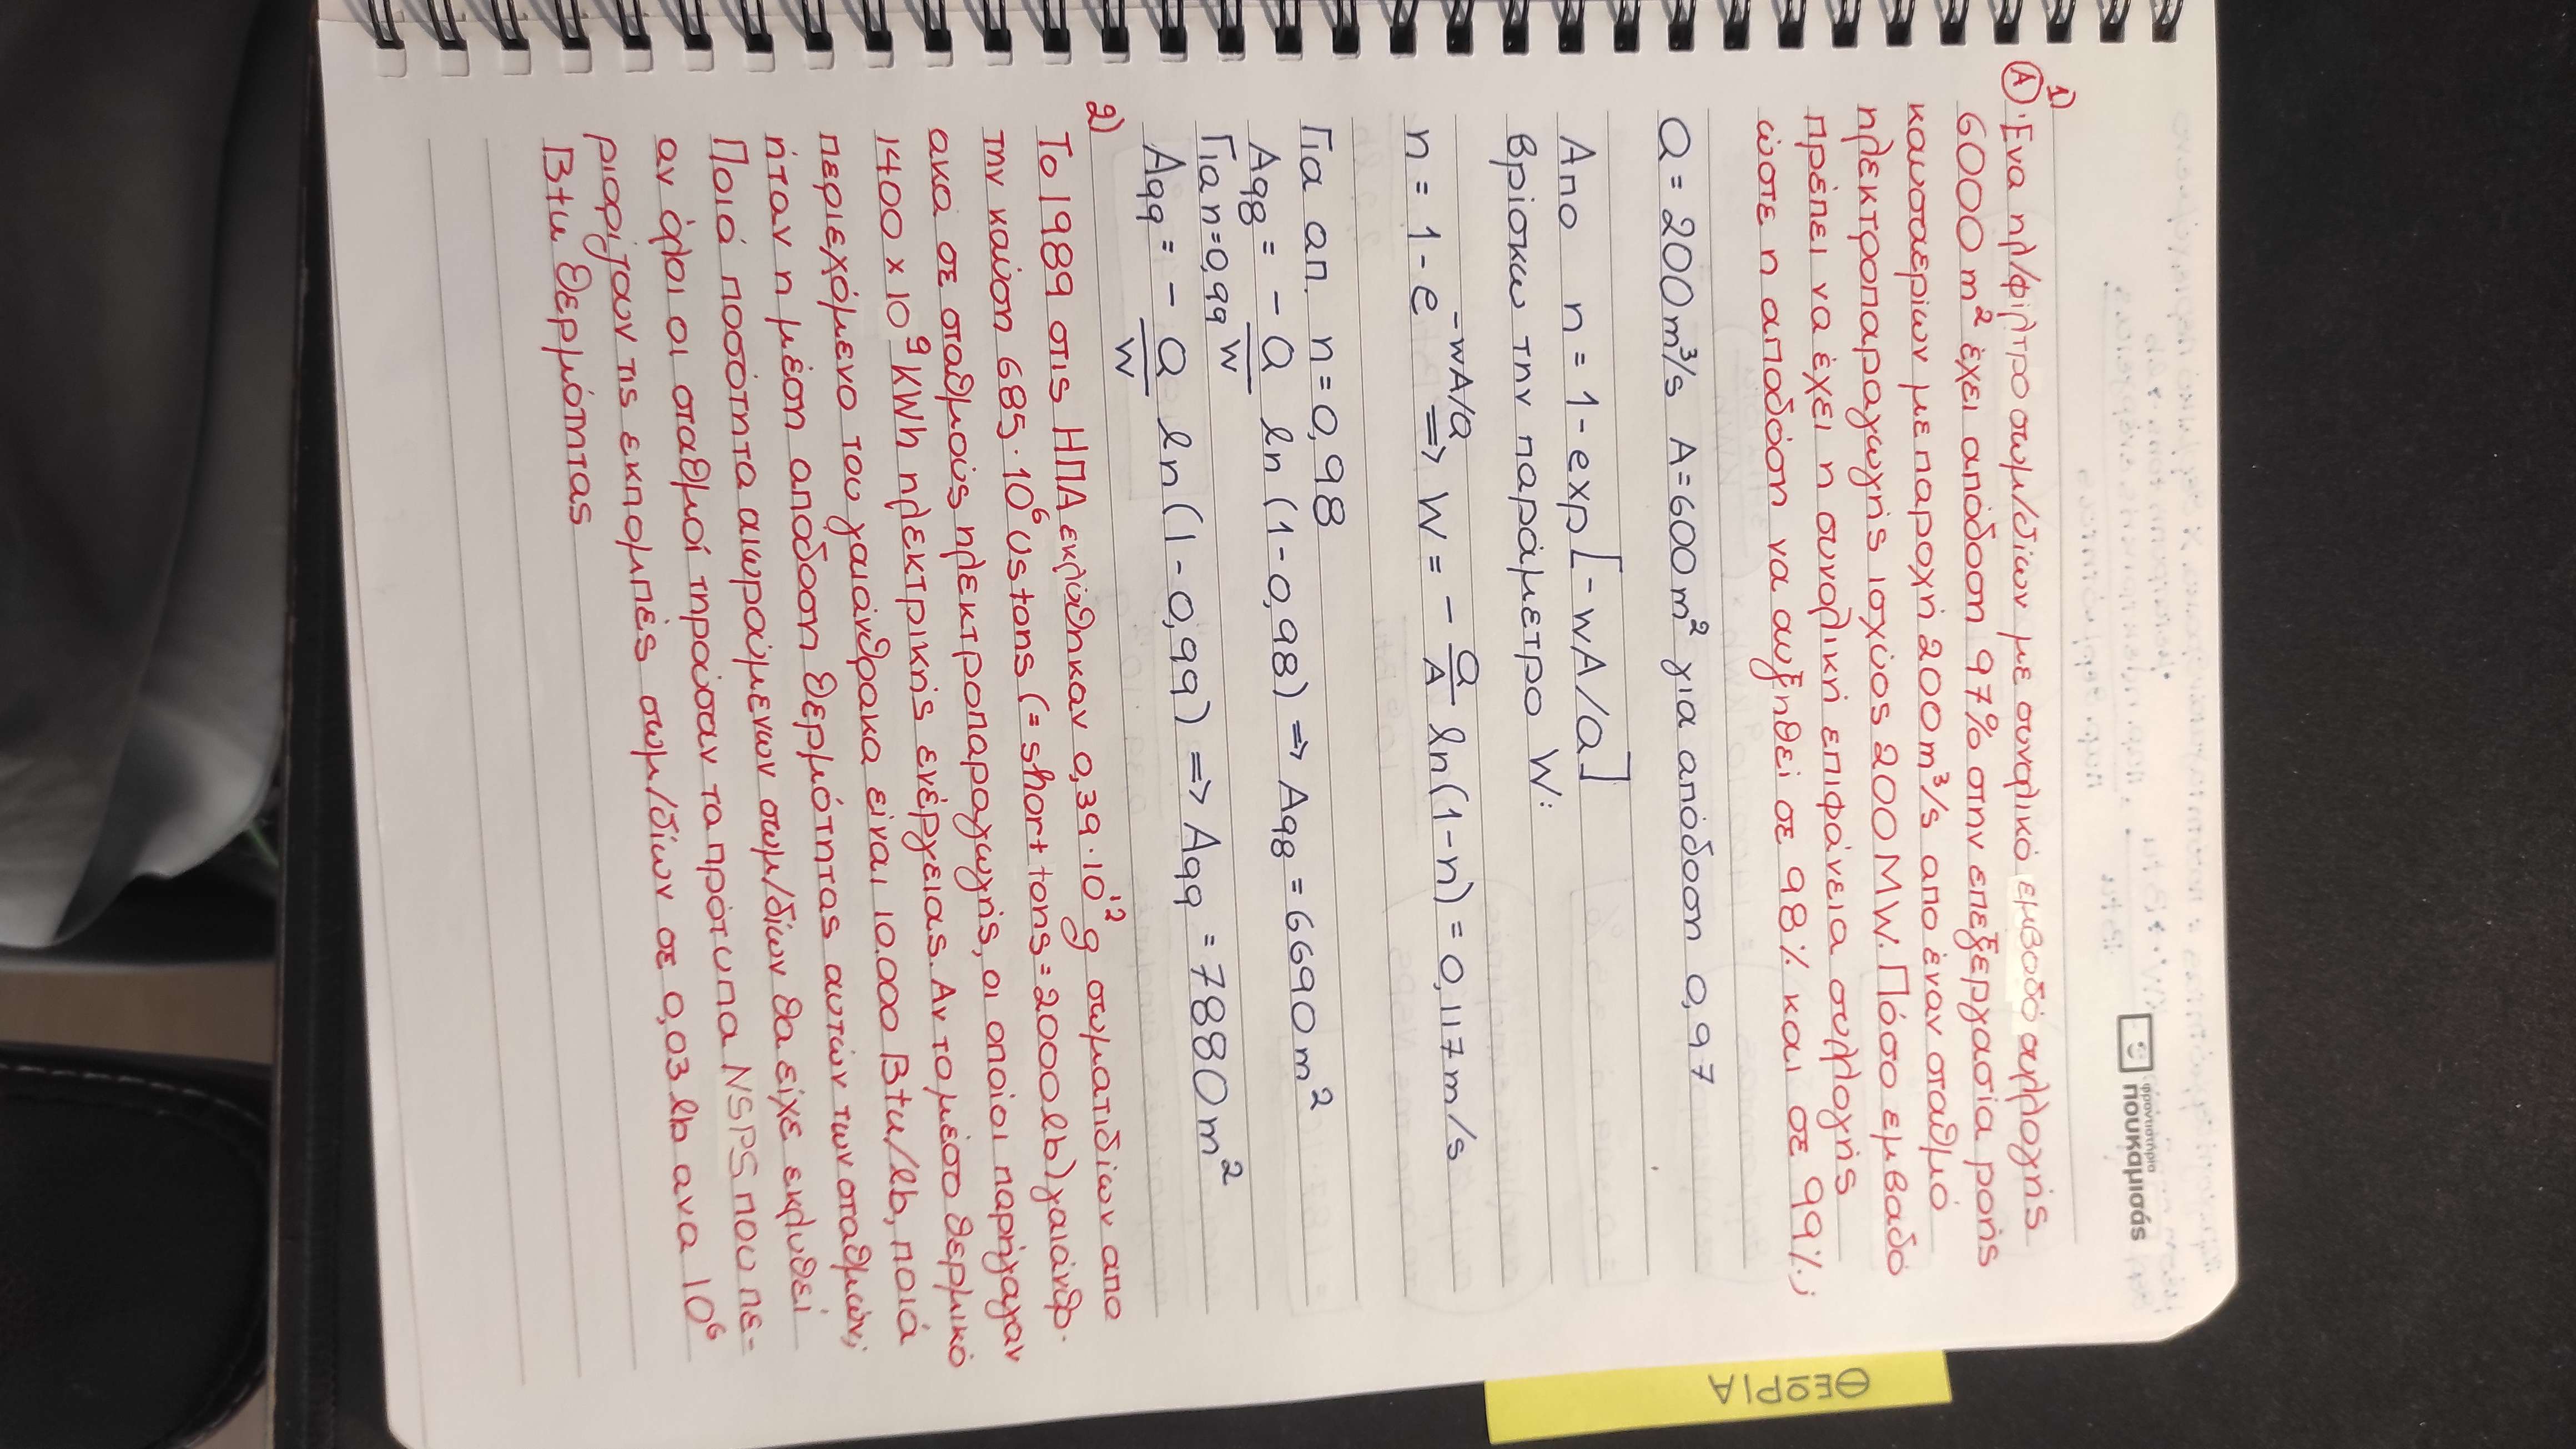 φροντιστήρια
πουκαμισάς
1)
Α Ένα ηλ/φίλτρο σωμ/δίων με συνολικό εμβαδό συλλογής
6000 m² έχει απόδοση 97% στην επεξεργασία ροής
καυσταερίων με παροχή 200m³/s απο έναν σταθμό
ηλεκτροπαραγωγής ισχύος 200 MW. Πόσο εμβαδό
πρέπει να έχει η συνολική επιφάνεια συλλογής
ώστε η αποδόση να αυξηθεί σε 98% και σε 99%;
Q = 200m³/s A=600m² για απόδοση 0,97
Απο n = 1-exp[-wA/Q]
βρίσκω την παράμετρο W:
n = 1-e^-wA/Q ⇒ W = - Q/A ln(1-n) = 0,117m/s
Για απ. n=0,98
A98 = - Q/W ln (1-0,98) ⇒ A98 = 6690m²
Για n=0,99
A99 = - Q/W ln(1-0,99) ⇒ A99 = 7880m²
2)
Το 1989 στις ΗΠΑ εκλύθηκαν 0,39·10¹² g σωματιδίων απο
την καύση 685·10⁶ US tons (= short tons = 2000lb) γαιάνθρ.
ακα σε σταθμούς ηλεκτροπαραγωγής, οι οποίοι παρήγαγαν
1400 x 10⁹ KWh ηλεκτρικής ενέργειας. Αν το μέσο θερμικό
περιεχόμενο του γαιάνθρακα είναι 10.000 Btu/lb, ποιά
ήταν η μέση απόδοση θερμότητας αυτών των σταθμών;
Ποιά ποσότητα αιωρούμενων σωμ/δίων θα είχε εκλυθεί
αν όλοι οι σταθμοί τηρούσαν τα πρότυπα NSPS που πε-
ριορίζουν τις εκπομπές σωμ/δίων σε 0,03 lb ανα 10⁶
Btu θερμότητας
ΘΕΩΡΙΑ